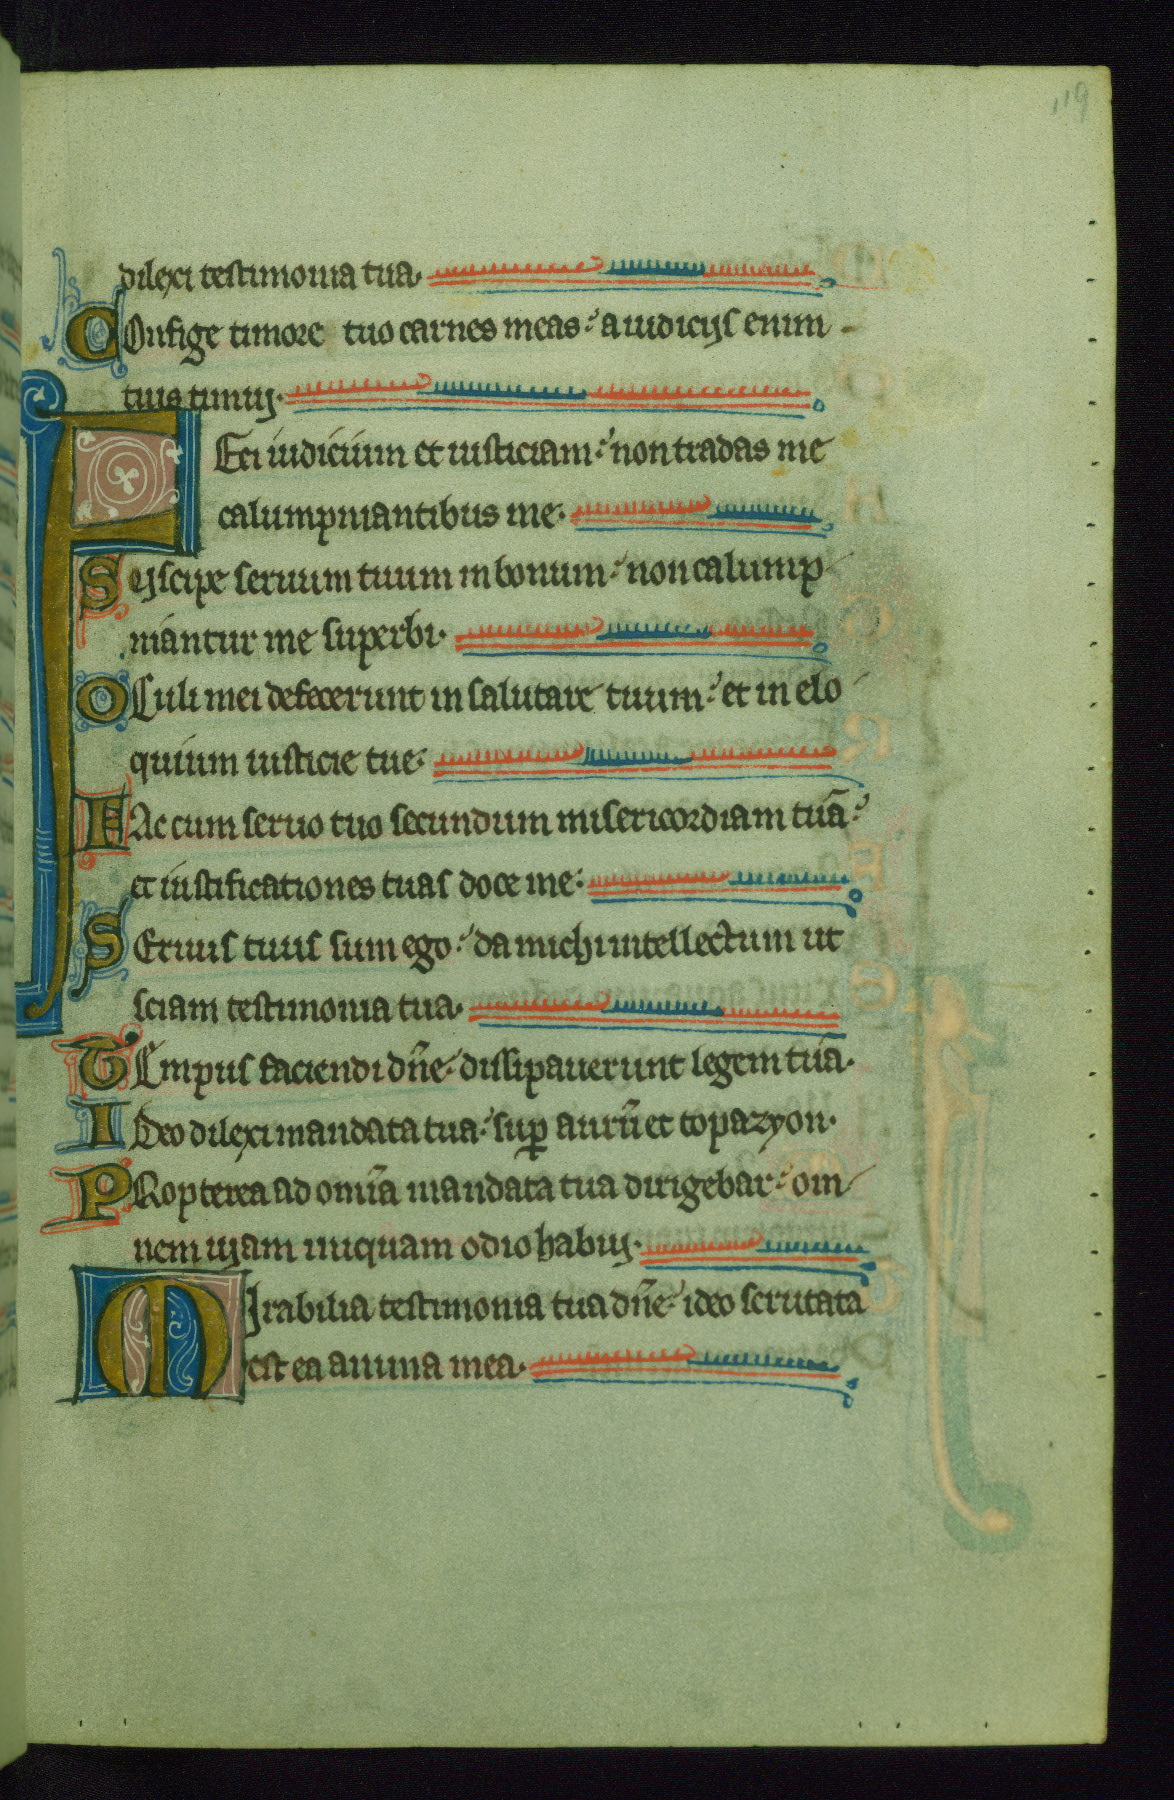 119
dilexi testimonia tua.
Confige timore tuo carnes meas: a iudicijs enim
tuis timuj.
Feci iudicium et iusticiam: non tradas me
calumpniantibus me.
Suscipe seruum tuum in bonum: non calump
niantur me superbi.
Oculi mei defecerunt in salutare tuum: et in elo
quium iusticie tue.
Fac cum seruo tuo secundum misericordiam tuā:
et iustificationes tuas doce me.
Seruus tuus sum ego: da michi intellectum ut
sciam testimonia tua.
Tempus faciendi dn̄e: dissipauerunt legem tuā.
Ideo dilexi mandata tua: sup̄ aurū et topazyon.
Propterea ad omīa mandata tua dirigebar: om
nem uiam iniquam odio habuj.
Mirabilia testimonia tua dn̄e: ideo scrutata
est ea anima mea.